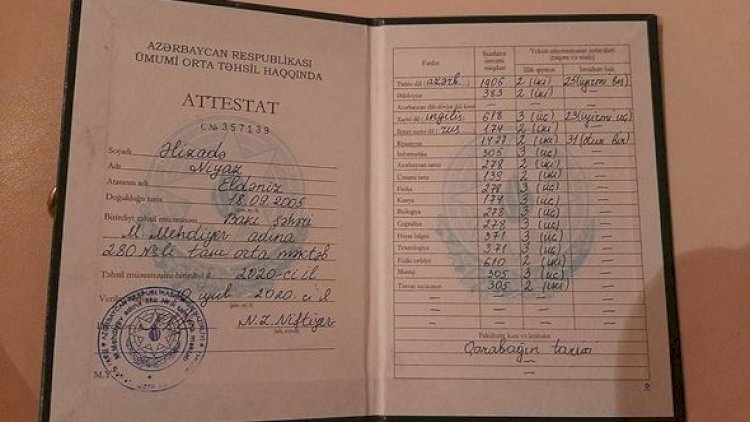 AZƏRBAYCAN RESPUBLİKASI
ÜMUMİ ORTA TƏHSİL HAQQINDA
ATTESTAT
C № 357139
Soyadı Əlizadə
Adı Niyaz
Atasının adı Eldəniz
Doğulduğu tarix 18.09.2005
Bitirdiyi təhsil müəssisəsi Bakı şəhəri
M. Mehdiyev adına
280 №-li tam orta məktəb
Təhsil müəssisəsini bitirdiyi il 2020-ci il
iyul 2020-ci il
N.Z. Niftiyev
M.Y.
Fənlər
Yekun attestasiyanın nəticələri
(rəqəm və sözlə)
İllik qiymət
İmtahan balı
Tədris dili: azərb. 1906 2 (iki) 25 (iyirmi beş)
Ədəbiyyat 383 2 (iki) —
Azərbaycan dili-dövlət dili kimi — — —
Xarici dil: ingilis 618 3 (üç) 23 (iyirmi üç)
İkinci xarici dil: rus 174 2 (iki) —
Riyaziyyat 1427 2 (iki) 31 (otuz bir)
İnformatika 305 3 (üç) —
Azərbaycan tarixi 278 2 (iki) —
Ümumi tarix 139 2 (iki) —
Fizika 278 3 (üç) —
Kimya 174 3 (üç) —
Biologiya 278 3 (üç) —
Coğrafiya 278 3 (üç) —
Həyat bilgisi 371 3 (üç) —
Texnologiya 271 3 (üç) —
Fiziki tərbiyə 610 2 (iki) —
Musiqi 305 3 (üç) —
Təsviri incəsənət 305 2 (iki) —
Fakültativ kurs və fənlər
Qarabağın tarixi